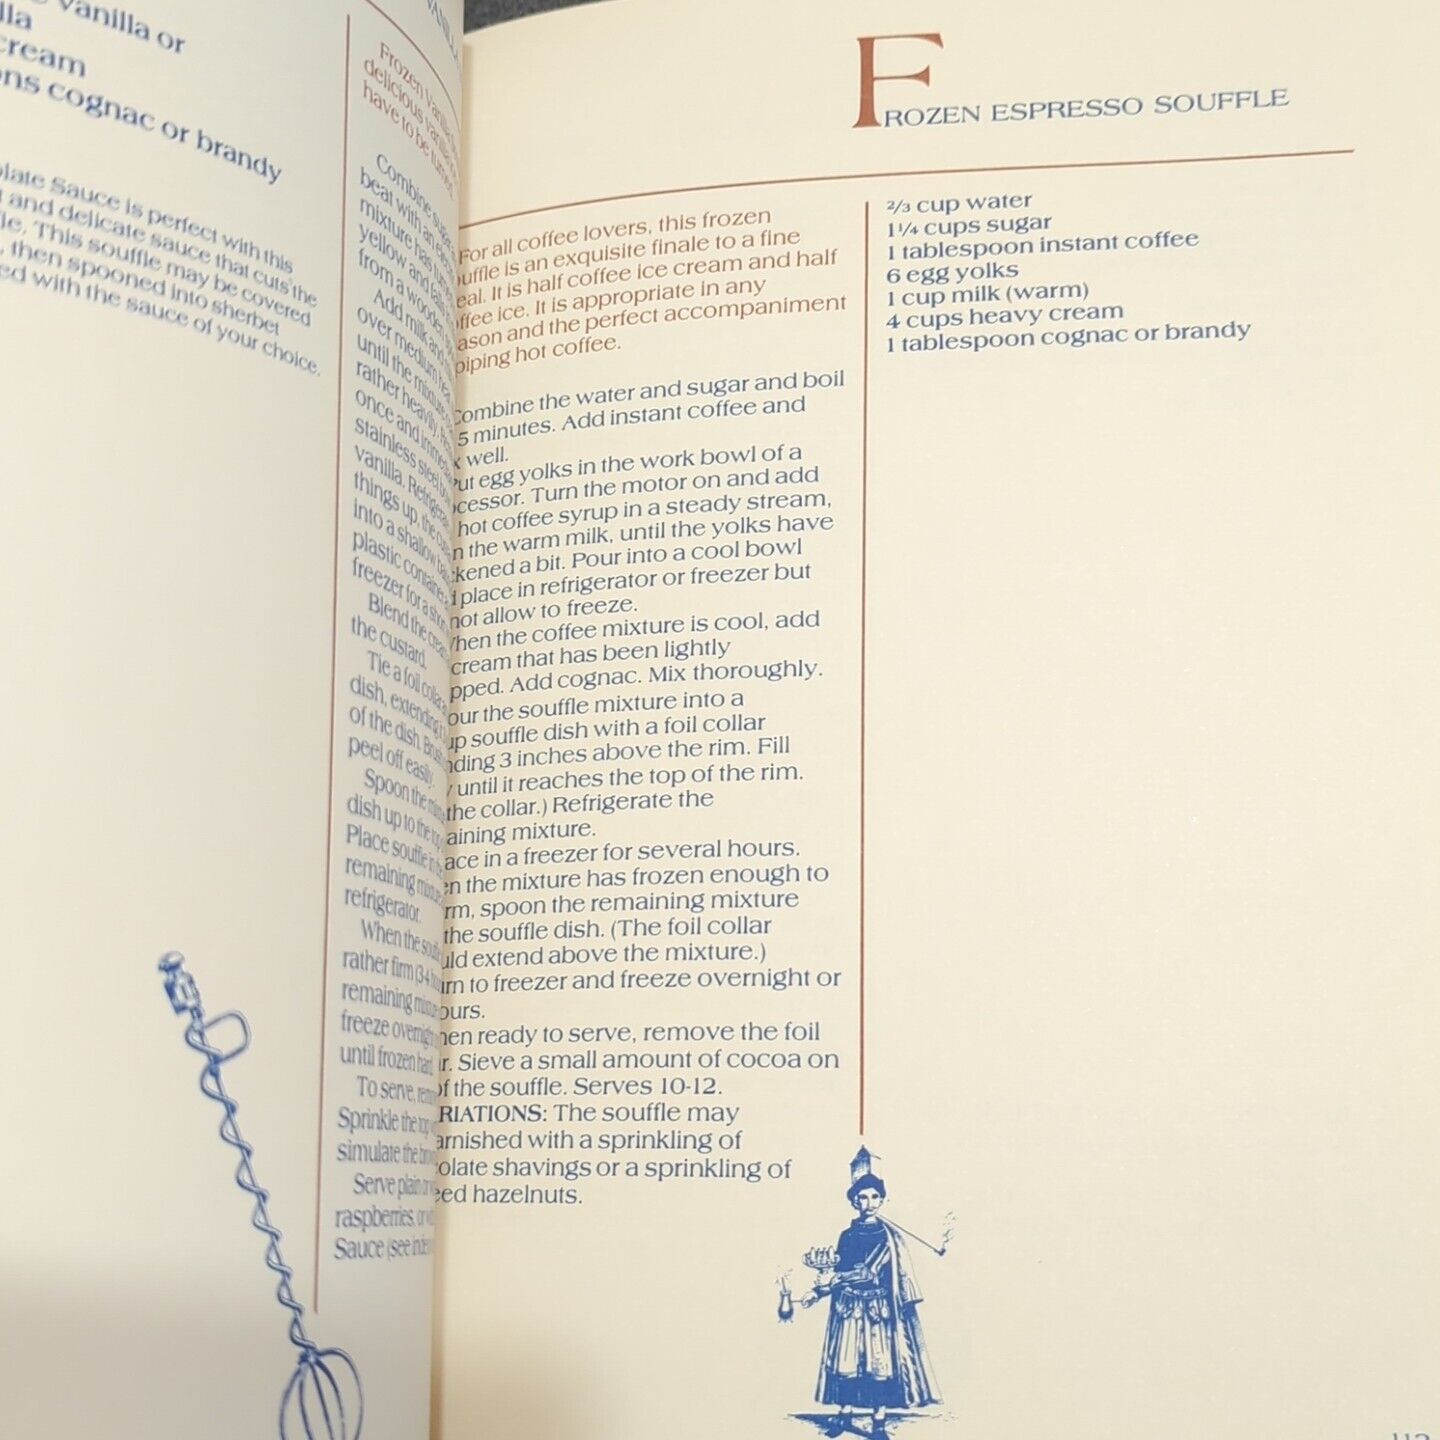 vanilla or
cream
cognac or brandy
Sauce is perfect with this
and delicate sauce that cuts the
This souffle may be covered
then spooned into sherbet
with the sauce of your choice.
Frozen Vanilla
delicious vanilla
have to be
Combine
beat with an
mixture has
yellow and
from a wooden
Add milk and
over medium
until the mixture
rather heavily.
once and
stainless steel
vanilla.
things up, the
into a shallow
plastic
freezer for a
Blend the
the custard.
Tie a foil
dish, extending
of the dish.
peel off easily.
Spoon the
dish up to the
Place souffle in
remaining
refrigerator.
When the
rather firm (3-4
remaining
freeze overnight
until frozen hard
To serve,
Sprinkle the
simulate the
Serve plain or
raspberries, or
Sauce (see
FROZEN ESPRESSO SOUFFLE
For all coffee lovers, this frozen
uffle is an exquisite finale to a fine
eal. It is half coffee ice cream and half
ffee ice. It is appropriate in any
ason and the perfect accompaniment
piping hot coffee.
ombine the water and sugar and boil
5 minutes. Add instant coffee and
x well.
ut egg yolks in the work bowl of a
ocessor. Turn the motor on and add
hot coffee syrup in a steady stream,
n the warm milk, until the yolks have
ckened a bit. Pour into a cool bowl
d place in refrigerator or freezer but
not allow to freeze.
hen the coffee mixture is cool, add
cream that has been lightly
pped. Add cognac. Mix thoroughly.
our the souffle mixture into a
up souffle dish with a foil collar
nding 3 inches above the rim. Fill
y until it reaches the top of the rim.
the collar.) Refrigerate the
aining mixture.
ace in a freezer for several hours.
en the mixture has frozen enough to
rm, spoon the remaining mixture
the souffle dish. (The foil collar
uld extend above the mixture.)
urn to freezer and freeze overnight or
ours.
hen ready to serve, remove the foil
r. Sieve a small amount of cocoa on
of the souffle. Serves 10-12.
RIATIONS: The souffle may
arnished with a sprinkling of
olate shavings or a sprinkling of
eed hazelnuts.
2/3 cup water
1 1/4 cups sugar
1 tablespoon instant coffee
6 egg yolks
1 cup milk (warm)
4 cups heavy cream
1 tablespoon cognac or brandy